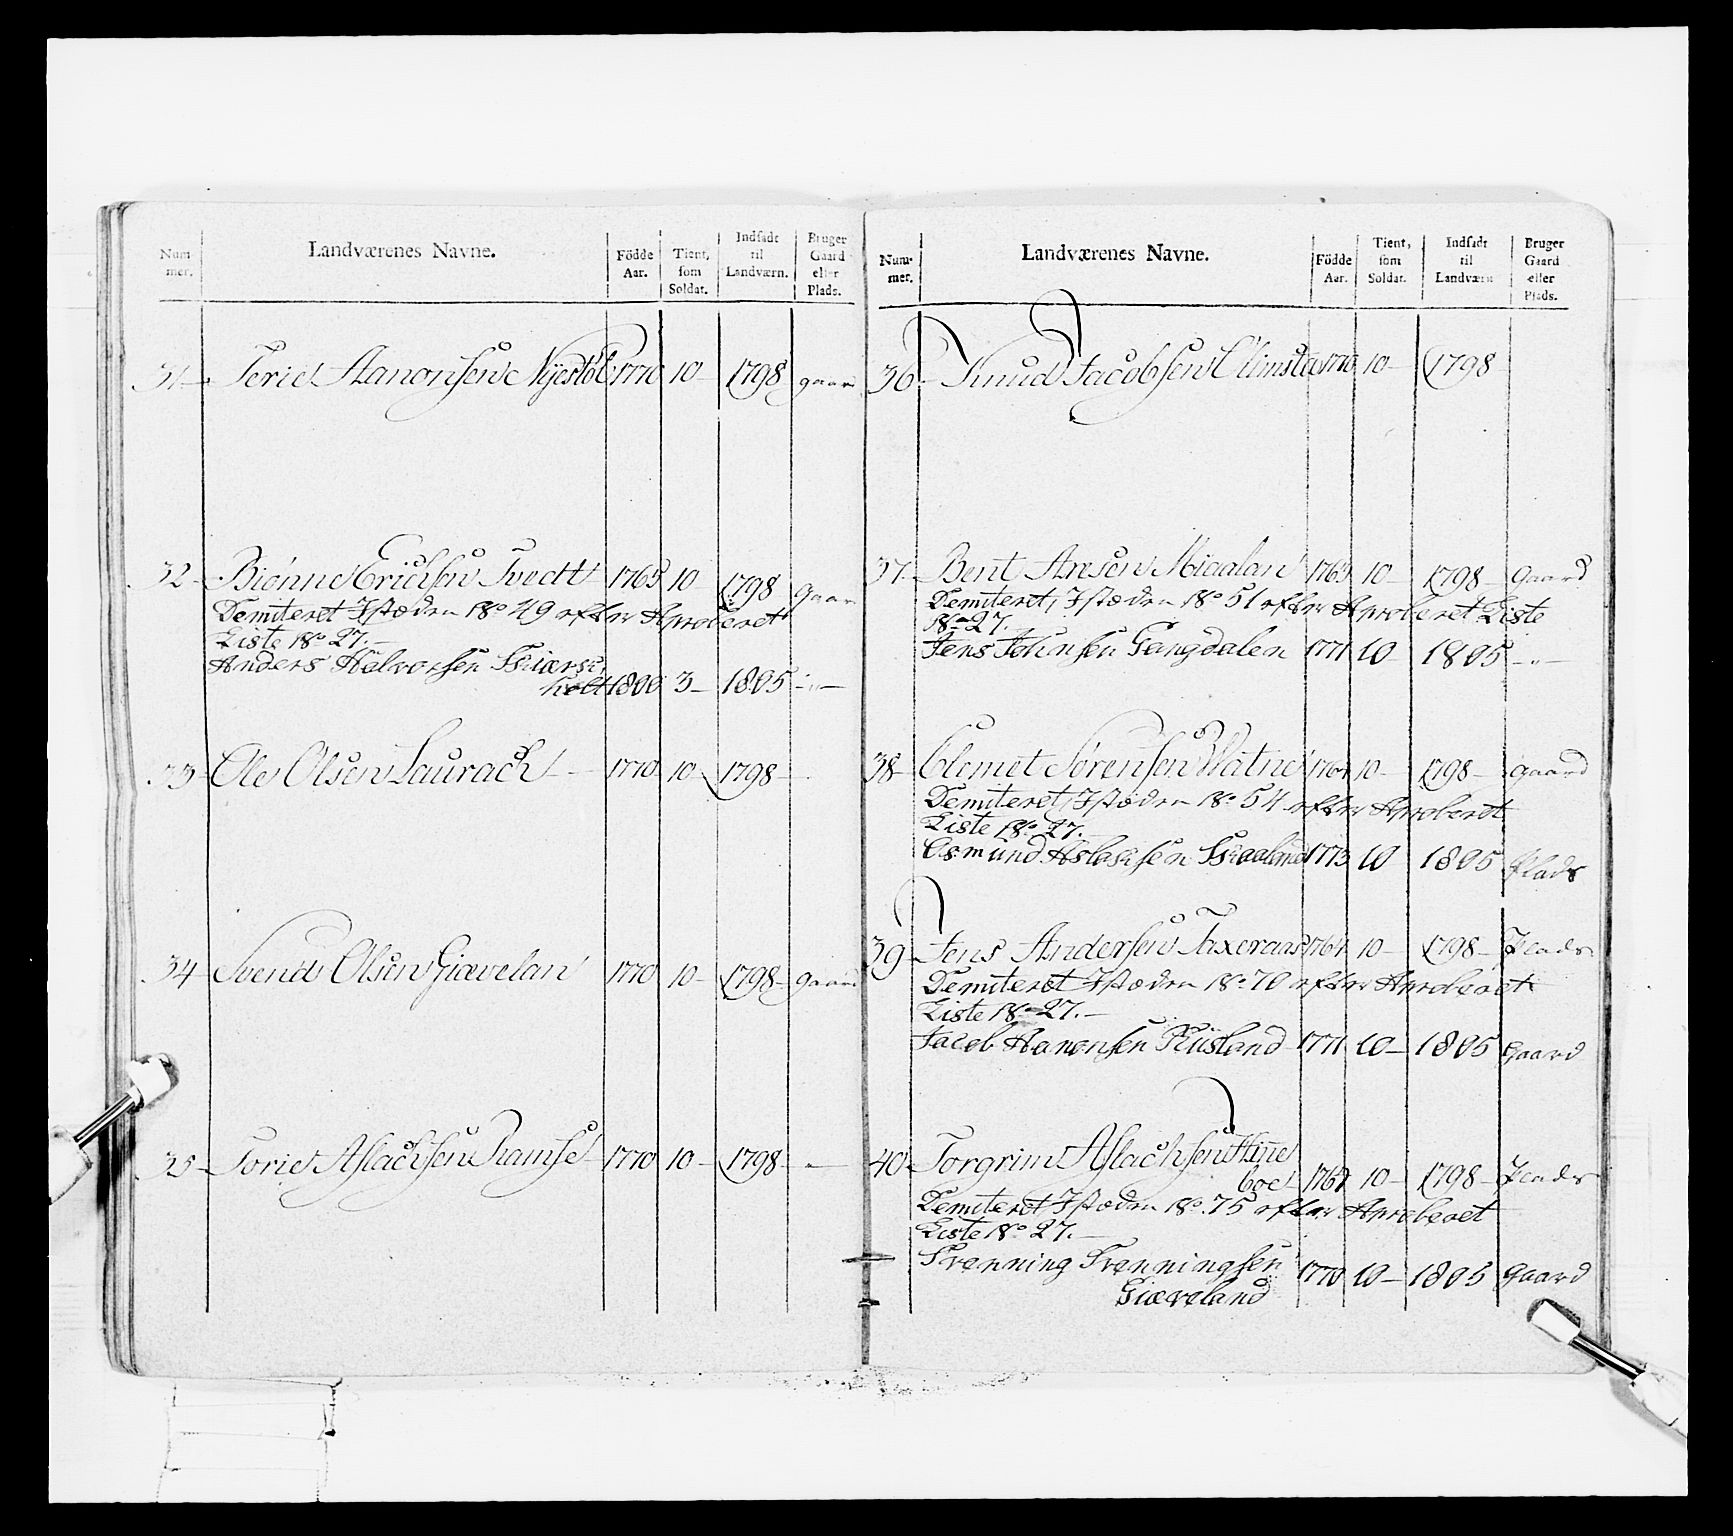 Num-mer. Landværenes Navne. Födde Aar. Tient, som Soldat. Indsadt til Landværn. Bruger Gaard eller Plads.
31 Teriel Aanonsen Nyestöl 1770 10 1798 gaar
32 Biönne Erichsen Tvedt 1765 10 1798 Gaar
Demiteret Istæden No 49 efter Aproberet
Liste No 27.
Anders Halvorsen Skiærk
holt 1800 3 1805 -"-
33 Ole Olsen Laurach 1770 10 1798
34 Svend Olsen Giævelan 1770 10 1798 gaard
35 Toriel Aslachsen Ramse 1770 10 1798 -
Num-mer. Landværenes Navne. Födde Aar. Tient, som Soldat. Indsadt til Landværn Bruger Gaard eller Plads.
36 Knud Jacobsen 1770 10 1798
37 Bent Aresen Miaalan 1765 10 1798 Gaard
Demiteret, Istæden No 51 efter Aproberet Liste
No 27.
Jens Johnsen Gangdalen 1771 10 1805 -"-
38 Clemet Sörensen Watne 1764 10 1798 Gaard
Demiteret, Istæden No 54 efter Aproberet
Liste No 27.
Osmund Aslaksen Skaaland 1773 10 1805 Plads
39 Jens Andersen Taxeraas 1764 10 1798 Plads
Demiteret Istæden No 70 efter Aproberet
Liste No 27.
Jacob Hanonsen Riisland 1771 10 1805 Gaard
40 Torgrim Aslachsen Hinne
boe 1767 10 1798 Plads
Demiteret Istæden No. 75 efter Aproberet
Liste No 27.
Trenning Trenningsen 1770 10 1805 Gaard
Giæveland